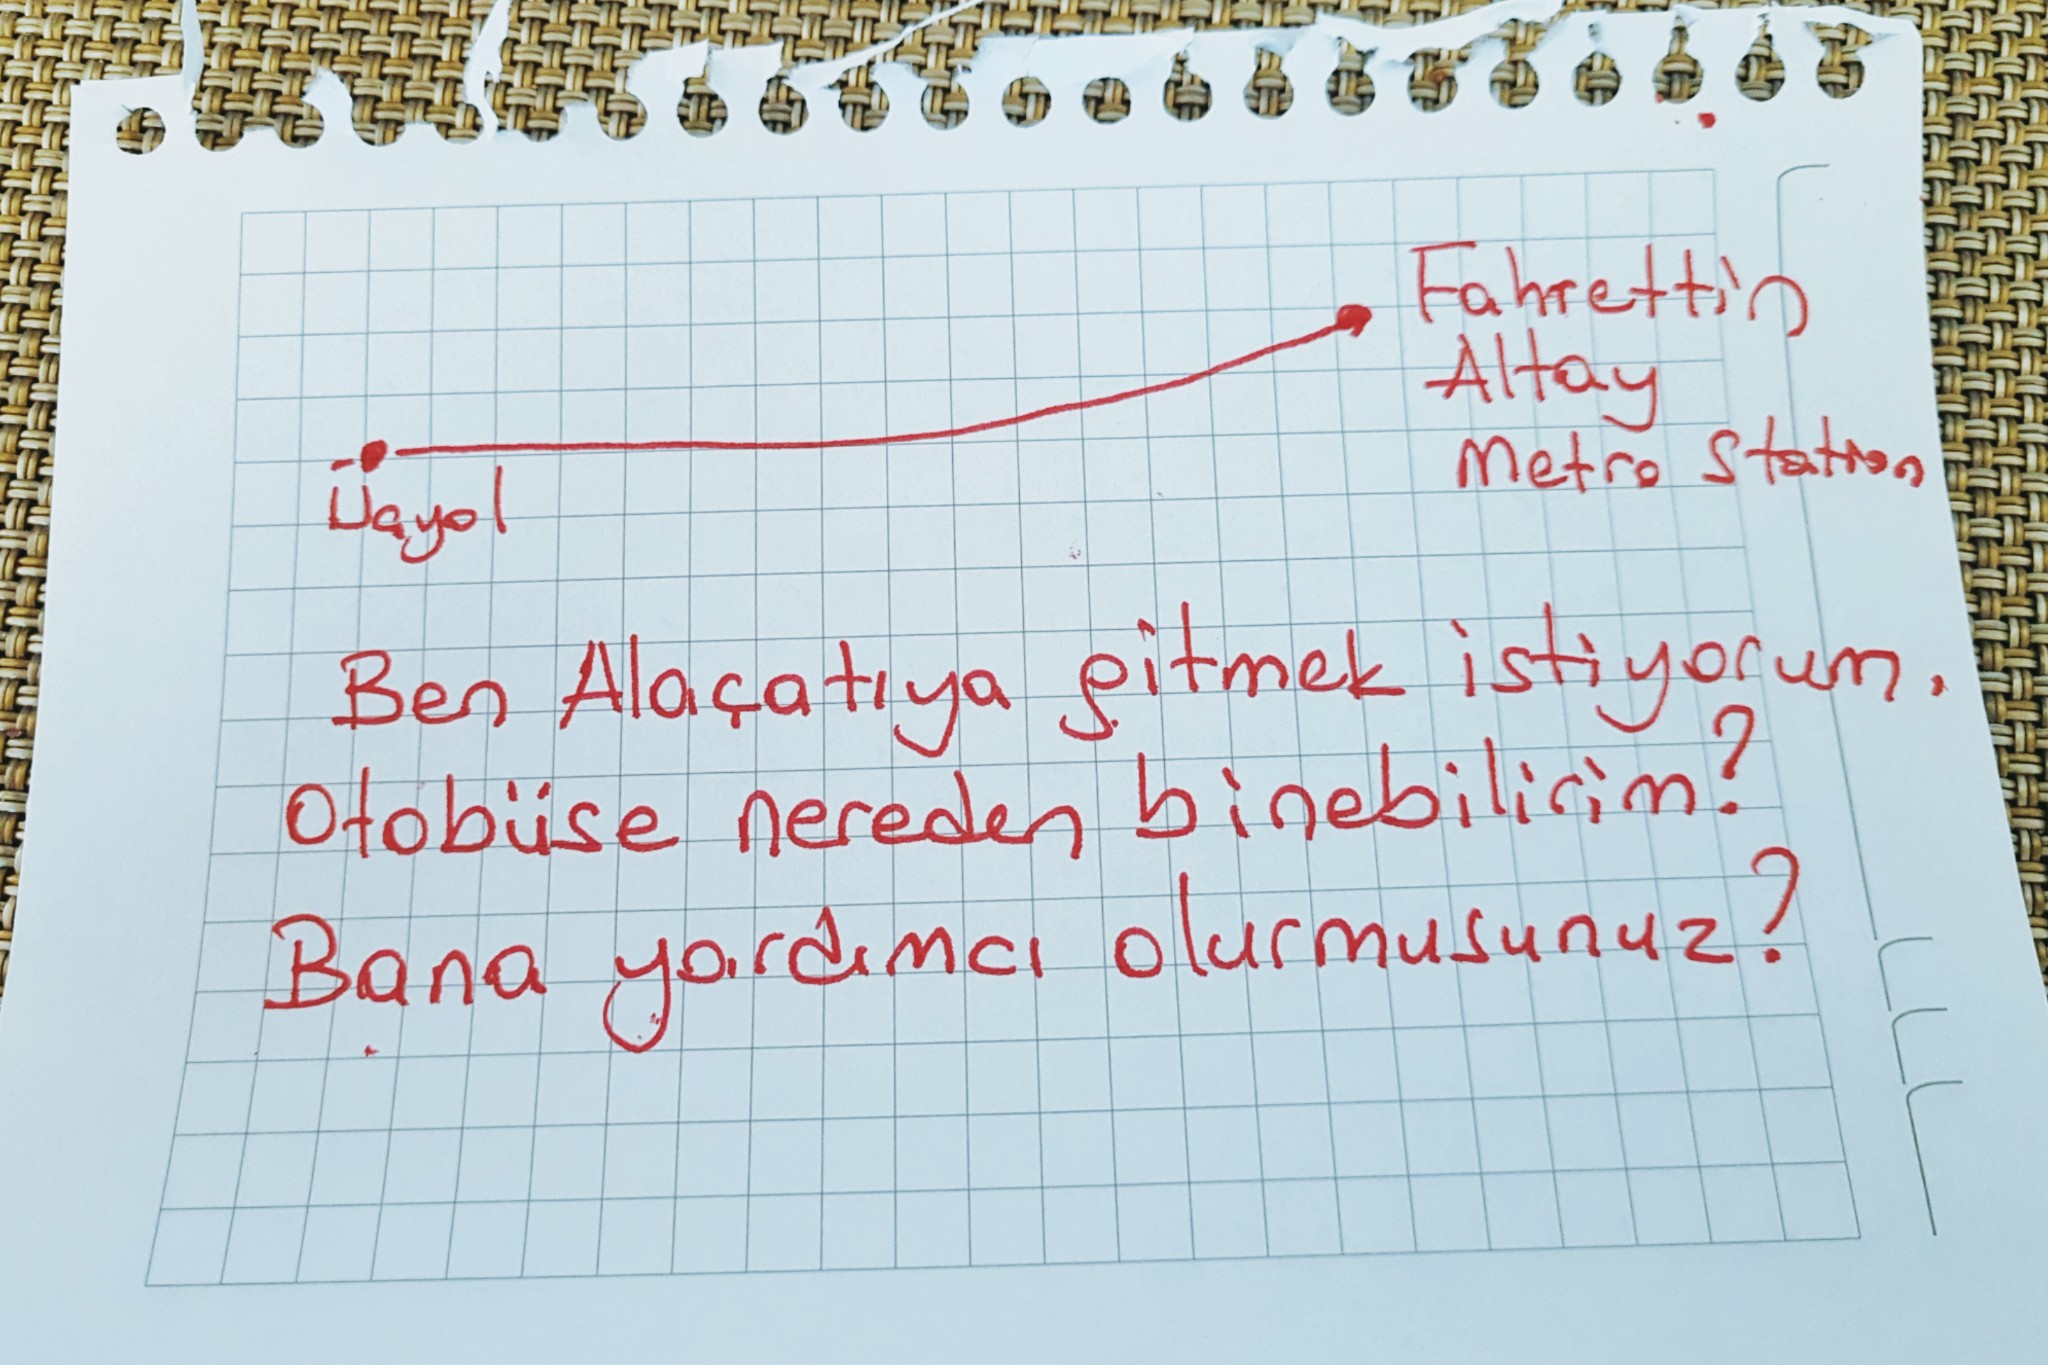 Fahrettin
Altay
Metro Station
Üçyol
Ben Alaçatıya gitmek istiyorum.
Otobüse nereden binebilirim?
Bana yardımcı olurmusunuz?